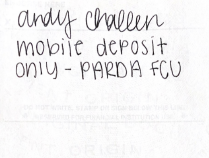 andy challen
mobile deposit
only - PARDA FCU